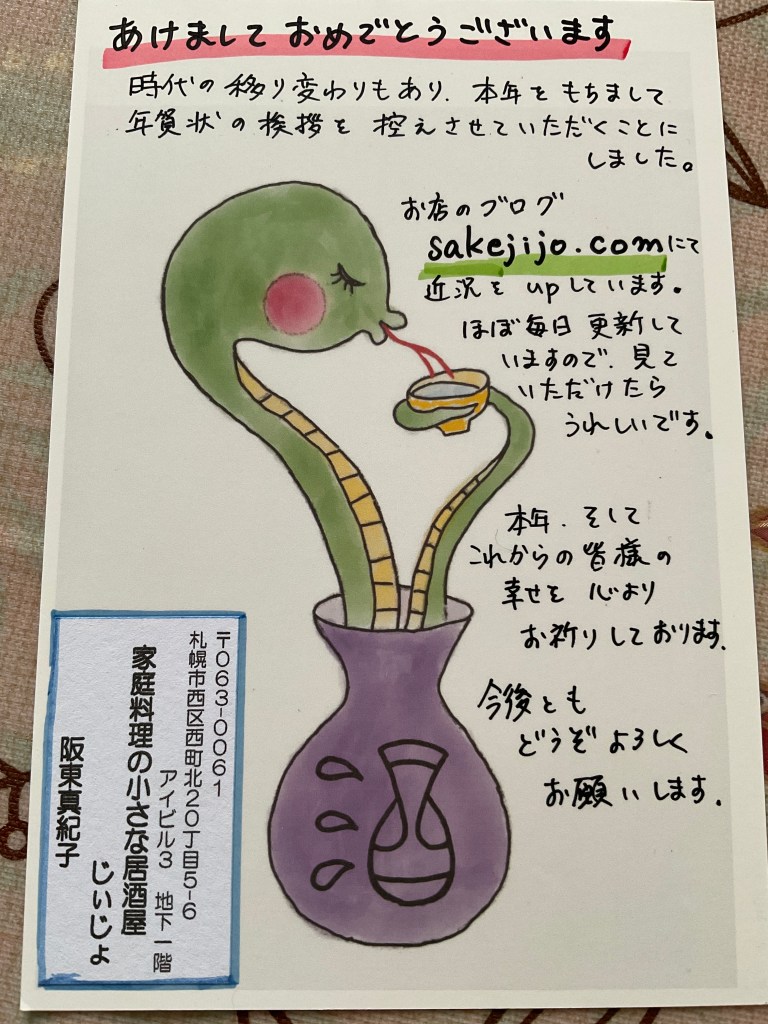 あけまして おめでとうございます
時代の移り変わりもあり、本年をもちまして
年賀状の挨拶を 控えさせていただくことに
しました。
お店のブログ
sakejijo.comにて
近況を upしています。
ほぼ毎日 更新して
いますので、見て
いただけたら
うれしいです。
本年、そして
これからの皆様の
幸せを 心より
お祈りしております。
今後とも
どうぞよろしく
お願いします。
〒063-0061
札幌市西区西町北20丁目5-6
アイビル3 地下一階
家庭料理の小さな居酒屋
じぃじょ
阪東真紀子